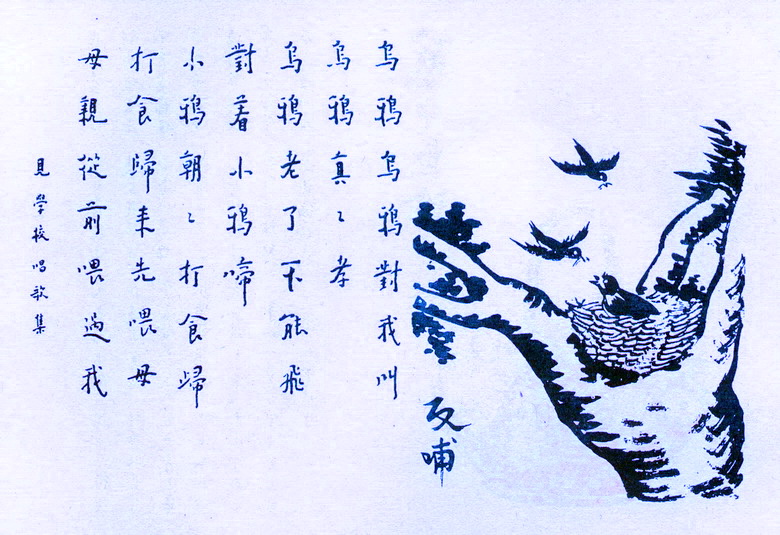 反哺
烏鴉烏鴉對我叫
烏鴉真〻孝
烏鴉老了不能飛
對着小鴉啼
小鴉朝〻打食歸
打食歸来先喂母
母親從前喂過我
見學校唱歌集